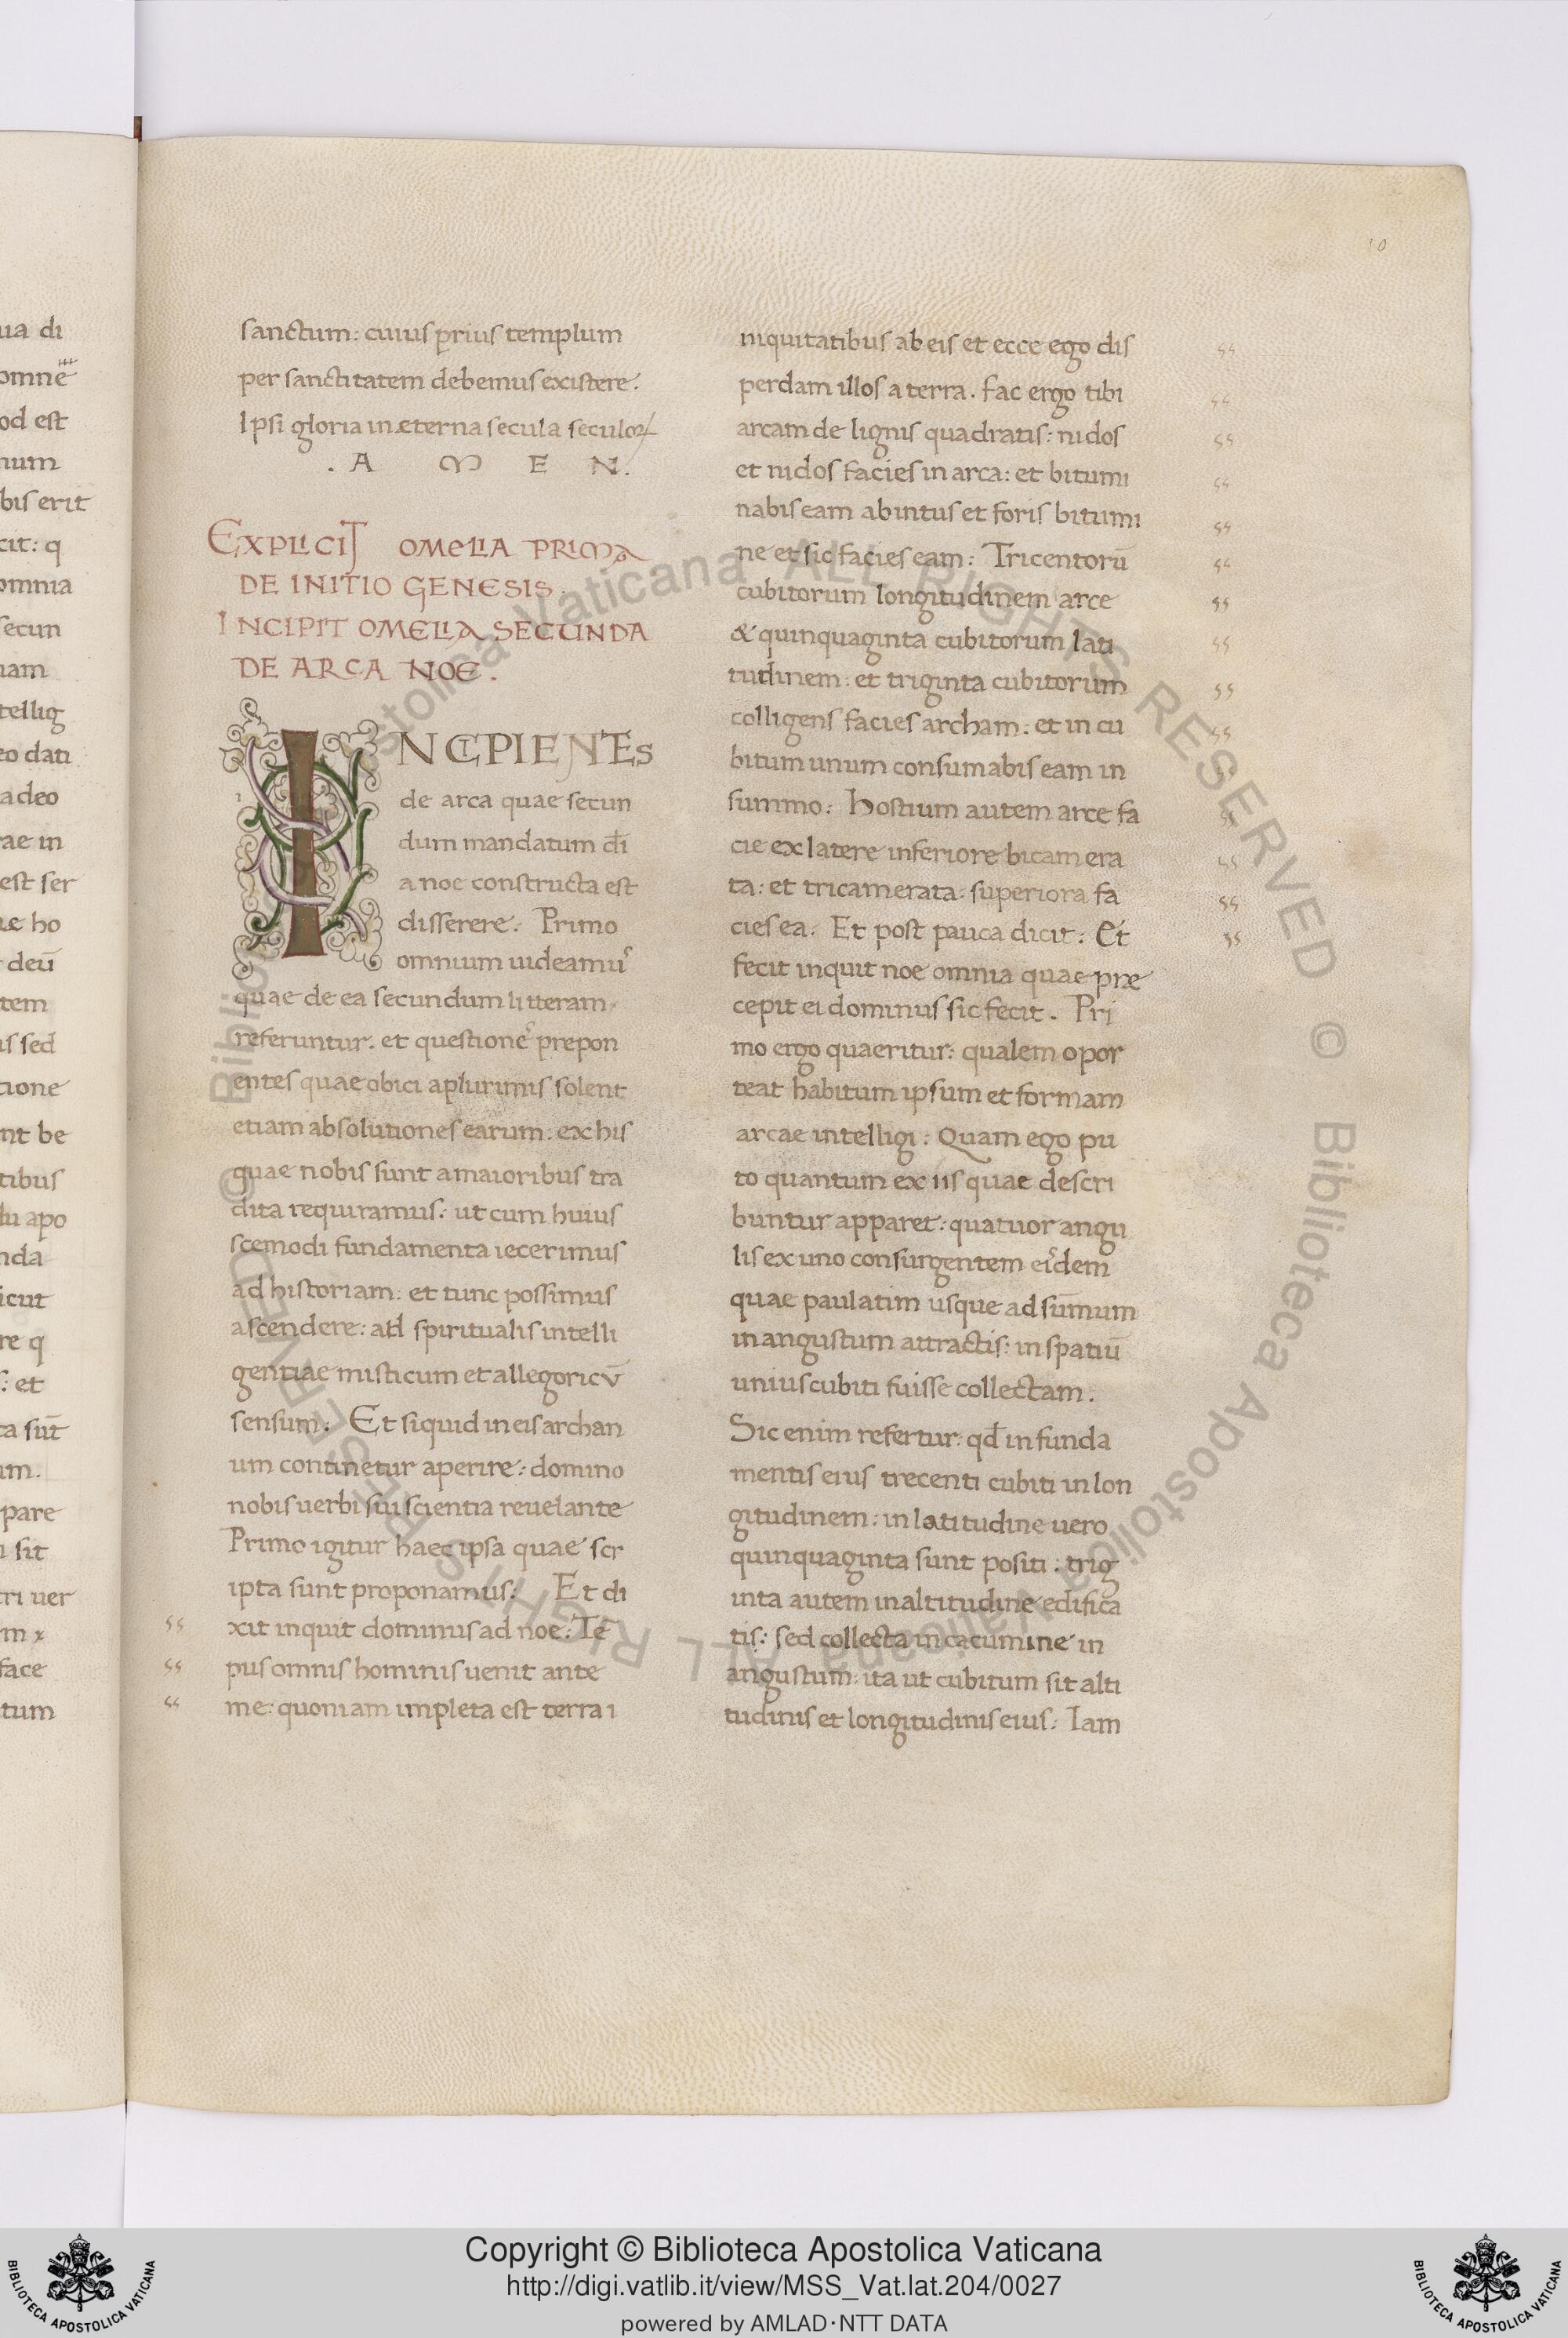 10
sanctum: cuius prius templum
per sanctitatem debemus existere.
Ipsi gloria in æterna secula seculoꝝ
. A M E N.
EXPLICIT OMELIA PRIMA
DE INITIO GENESIS.
INCIPIT OMELIA SECUNDA
DE ARCA NOE.
INCIPIENTES
de arca quae secun
dum mandatum dī
a noe constructa est
disserere. Primo
omnium uideamuˢ
quae de ea secundum litteram
referuntur. et questioneˢ prepon
entes quae obici a plurimis solent
etiam absolutiones earum: ex his
quae nobis sunt a maioribus tra
dita requiramus: ut cum huius
scemodi fundamenta iecerimus
ad historiam: et tunc possimus
ascendere: ad spiritualis intelli
gentiae misticum et allegoricū
sensum. Et siquid in eis archan
um continetur aperire: domino
nobis uerbi sui scientia reuelante
Primo igitur haec ipsa quae scr
ipta sunt proponamus. Et di
xit inquit dominus ad noe: Tē
pus omnis hominis uenit ante
me: quoniam impleta est terra i
niquitatibus ab eis et ecce ego dis
perdam illos a terra. fac ergo tibi
arcam de lignis quadratis: nidos
et nidos facies in arca: et bitumi
nabis eam ab intus et foris bitumi
ne et sic facies eam: Tricentorū
cubitorum longitudinem arce
& quinquaginta cubitorum lati
tudinem: et triginta cubitorum
colligens facies archam: et in cu
bitum unum consumabis eam in
summo: hostium autem arce fa
cie ex latere inferiore bicamera
ta: et tricamerata: superiora fa
cies ea: Et post pauca dicit: Et
fecit inquit noe omnia quae pre
cepit ei dominus sic fecit. Pri
mo ergo quaeritur: qualem opor
teat habitum ipsum et formam
arcae intelligi: Quam ego pu
to quantum ex iis quae descri
buntur apparet: quatuor angu
lis ex uno consurgentem eiˢdem
quae paulatim usque ad sūmum
in angustum attractis: in spatiū
unius cubiti fuisse collectam.
Sic enim refertur: qđ in funda
mentis eius trecenti cubiti in lon
gitudinem: in latitudine uero
quinquaginta sunt positi: trig
inta autem in altitudine edifica
tis: sed collecta in cacumine in
angustum: ita ut cubitum sit alti
tudinis et longitudinis eius: Iam
Copyright © Biblioteca Apostolica Vaticana
http://digi.vatlib.it/view/MSS_Vat.lat.204/0027
powered by AMLAD·NTT DATA
BIBLIOTECA APOSTOLICA VATICANA
BIBLIOTECA APOSTOLICA VATICANA